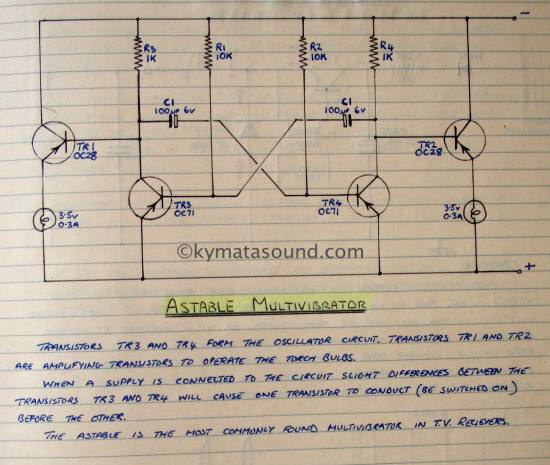 −
R3 1K
R1 10K
R2 10K
R4 1K
C1
100µF 6v
C1
100µF 6v
TR1
OC28
TR2
OC28
TR3
OC71
TR4
OC71
3·5v
0·3A
3·5v
0·3A
©kymatasound.com
+
ASTABLE MULTIVIBRATOR
TRANSISTORS TR3 AND TR4 FORM THE OSCILLATOR CIRCUIT. TRANSISTORS TR1 AND TR2
ARE AMPLIFYING TRANSISTORS TO OPERATE THE TORCH BULBS.
WHEN A SUPPLY IS CONNECTED TO THE CIRCUIT SLIGHT DIFFERENCES BETWEEN THE
TRANSISTORS TR3 AND TR4 WILL CAUSE ONE TRANSISTOR TO CONDUCT (BE SWITCHED ON)
BEFORE THE OTHER.
THE ASTABLE IS THE MOST COMMONLY FOUND MULTIVIBRATOR IN T.V. RECIEVERS.